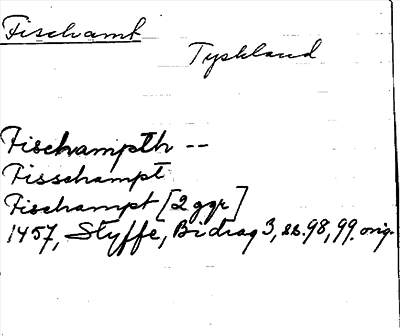 Fischamt
Tyskland
Fischampth --
Fisschampt
Fischampt [2 ggr]
1457, Styffe, Bidrag 3, ss. 98, 99. orig.